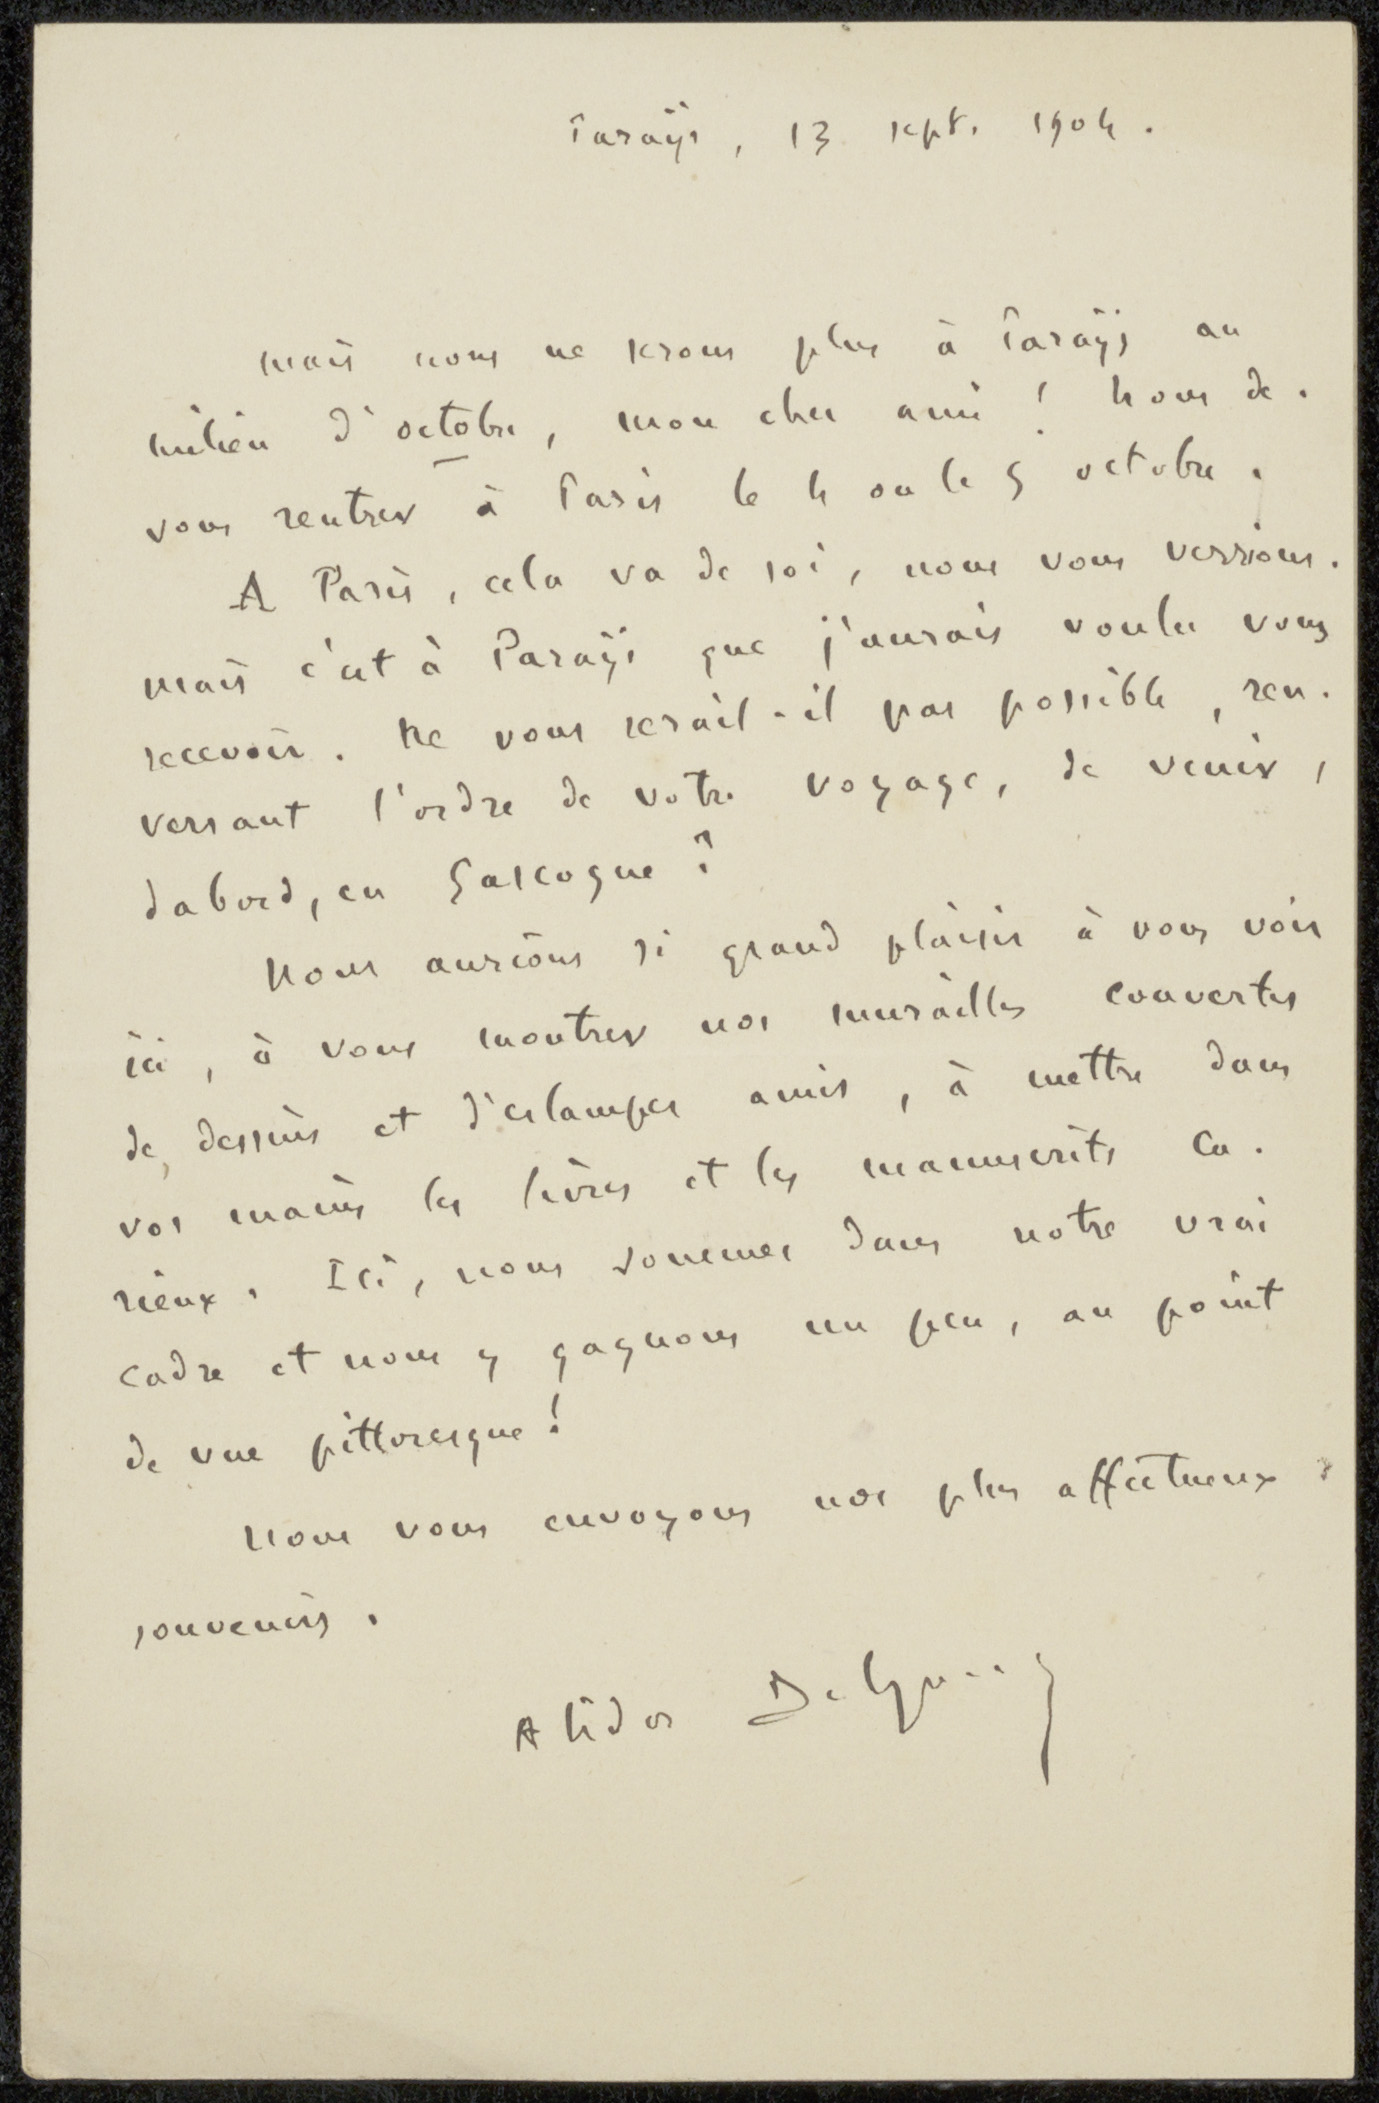 Parays, 13 sept. 1904.
Mais nous ne serons plus à Parays au
milieu d'octobre, mon cher ami ! Nous de-
vons rentrer à Paris le 4 ou le 5 octobre.
A Paris, cela va de soi, nous vous verrions.
Mais c'est à Parays que j'aurais voulu vous
recevoir. Ne vous serait-il pas possible, ren-
versant l'ordre de votre voyage, de venir,
dabord, en Gascogne ?
Nous aurions si grand plaisir à vous voir
ici, à vous montrer nos murailles couvertes
de dessins et d'estampes amis, à mettre dans
vos mains les livres et les manuscrits cu-
rieux. Ici, nous sommes dans notre vrai
cadre et nous y gagnons un peu, au point
de vue pittoresque !
Nous vous envoyons nos plus affectueux
souvenirs.
Alidor Delzant